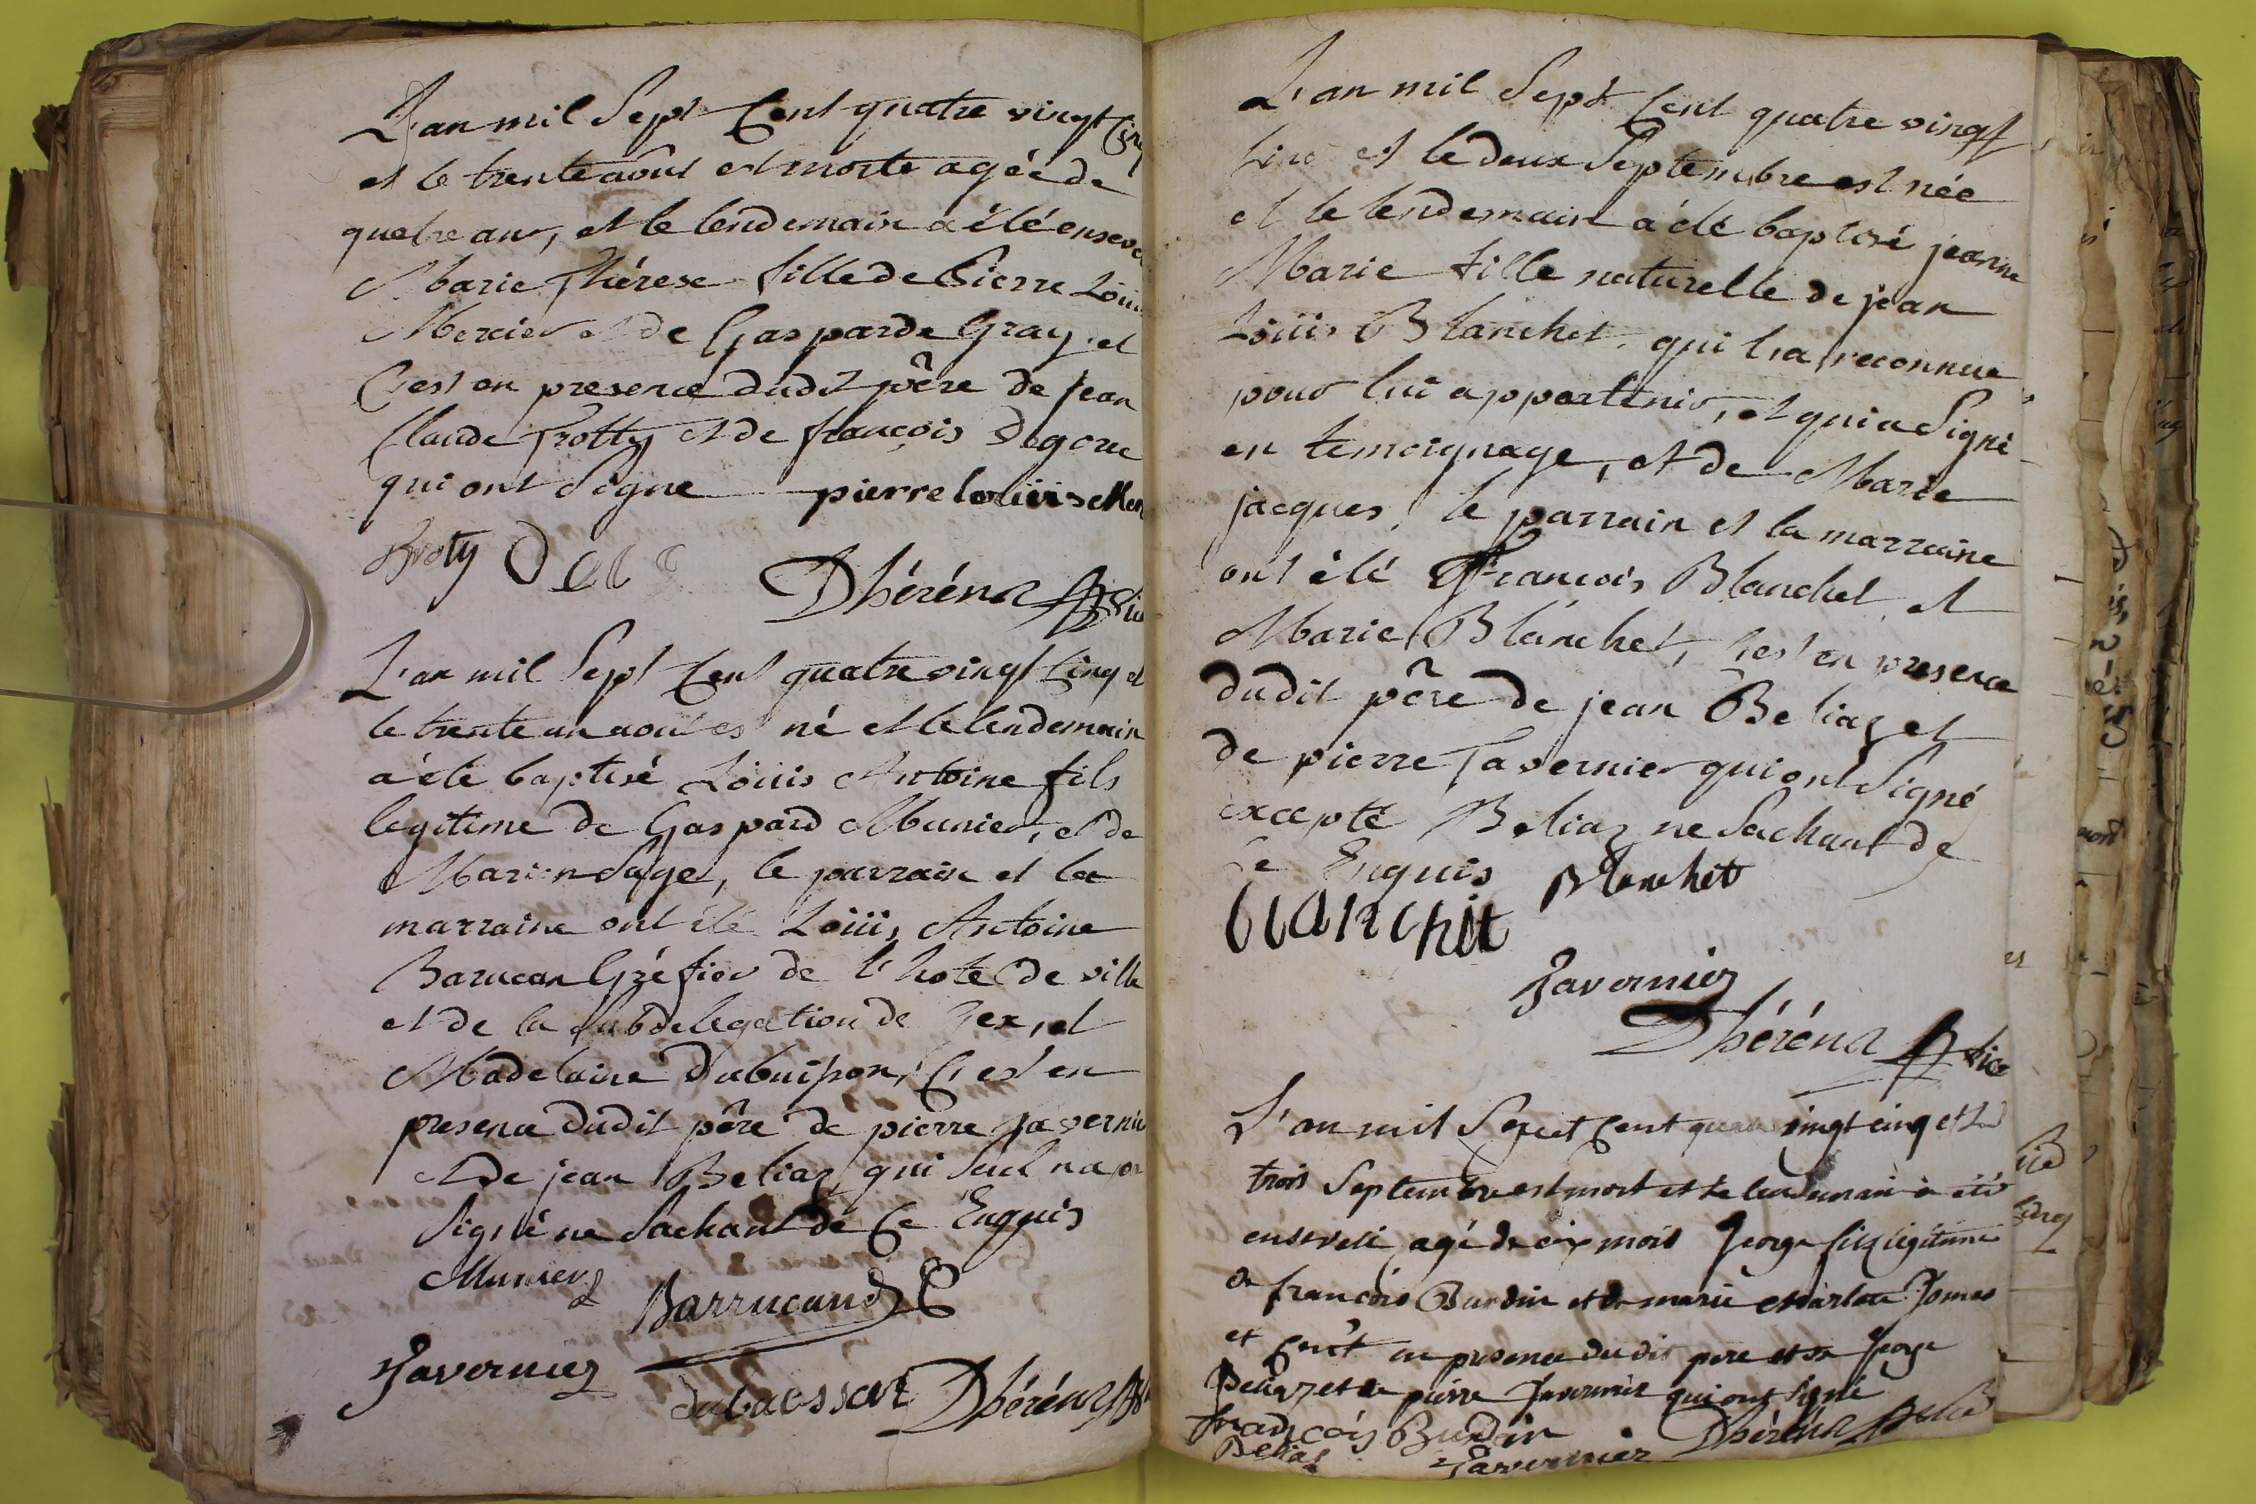 L'an mil Sept Cent quatre vingt Cinq
et le trente août est morte agée de
quatre ans, et le lendemain a été ensevelie
Marie Thérese fille de Pierre Loüis
Mercier et de Gasparde Gray, et
C'est en presence dudit pêre de jean
Claude Frotty et de françois Degore
qui ont Signé pierre louiis Mer
Froty
Dhéréna
L'an mil Sept Cent quatre vingt Cinq et
le trente un aout es né et le lendemain
a été baptisé Loüis Antoine fils
legitime de Gaspard Munier, et de
Marie Sage, le parrain et la
marraine ont été Loüis Antoine
Barucan Gréfier de l'hote de ville
et de la Subdelegation de Gex, et
Madelaine Dubuisson, C'est en
presence dudit pêre de pierre Tavernier
et de jean Beliaz qui Seul na pa
Signé ne Sachant de Ce Enquis
Munier
Barrucand
Tavernier
Dhéréna
L'an mil Sept Cent quatre vingt
Cinq et le deux Septembre est née
et le lendemain a été baptisé jeanne
Marie fille naturelle de jean
Loüis Blanchet, qui l'a reconnue
pour lui appartenir, et qui a Signé
en temoignage, et de Marie
jacques, le parrain et la marraine
ont été François Blanchet et
Marie Blanchet, C'est en presence
dudit pêre de jean Beliaz et
de pierre Tavernier qui ont Signé
excepté Beliaz ne Sachant de
Ce Enquis Blanchet
blanchet
Tavernier
Dhéréna vice
L'an mil Sept Cent quatre vingt cinq et le
trois Septembre est mort et le lendemain à été
enseveli agé de mois George fils légitime
de françois Burdin et de marie
et C'est en presence du dit pere et de George
Beliaz et de pierre Tavernier qui ont signé
françois Burdin Dhéréna
Belias Tavernier